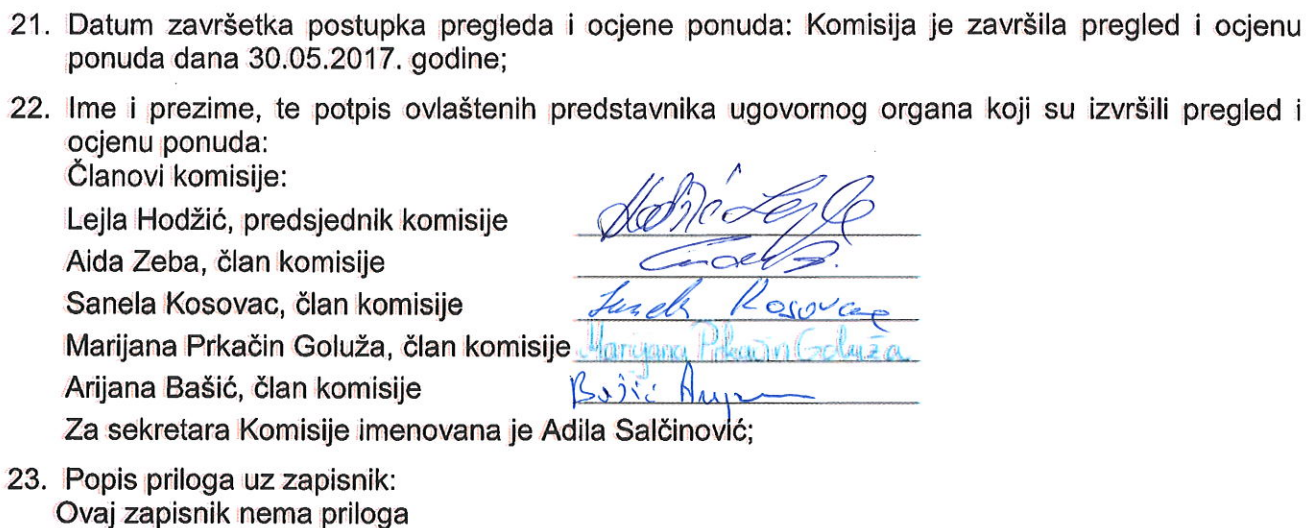 21. Datum završetka postupka pregleda i ocjene ponuda: Komisija je završila pregled i ocjenu
ponuda dana 30.05.2017. godine;
22. Ime i prezime, te potpis ovlaštenih predstavnika ugovornog organa koji su izvršili pregled i
ocjenu ponuda:
Članovi komisije:
Lejla Hodžić, predsjednik komisije Hodžić Lejla
Aida Zeba, član komisije
Sanela Kosovac, član komisije Kosovac
Marijana Prkačin Goluža, član komisije Marijana Prkačin Goluža
Arijana Bašić, član komisije Bašić
Za sekretara Komisije imenovana je Adila Salčinović;
23. Popis priloga uz zapisnik:
Ovaj zapisnik nema priloga